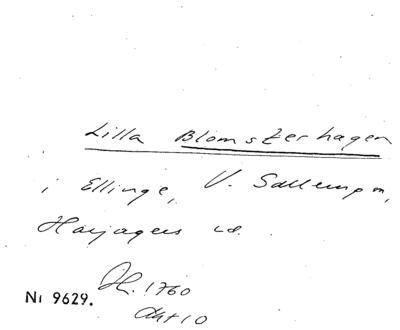 Lilla Blomsterhagen
i Ellinge, V. Sallerup sn,
Harjagers hd.
Nr 9629. Jh. 1760
Akt 10